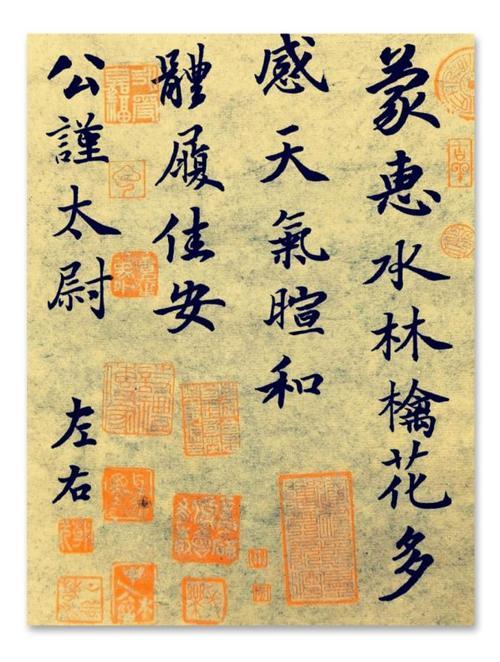 蒙惠水林檎花多
感天氣暄和
體履佳安
公謹太尉左右